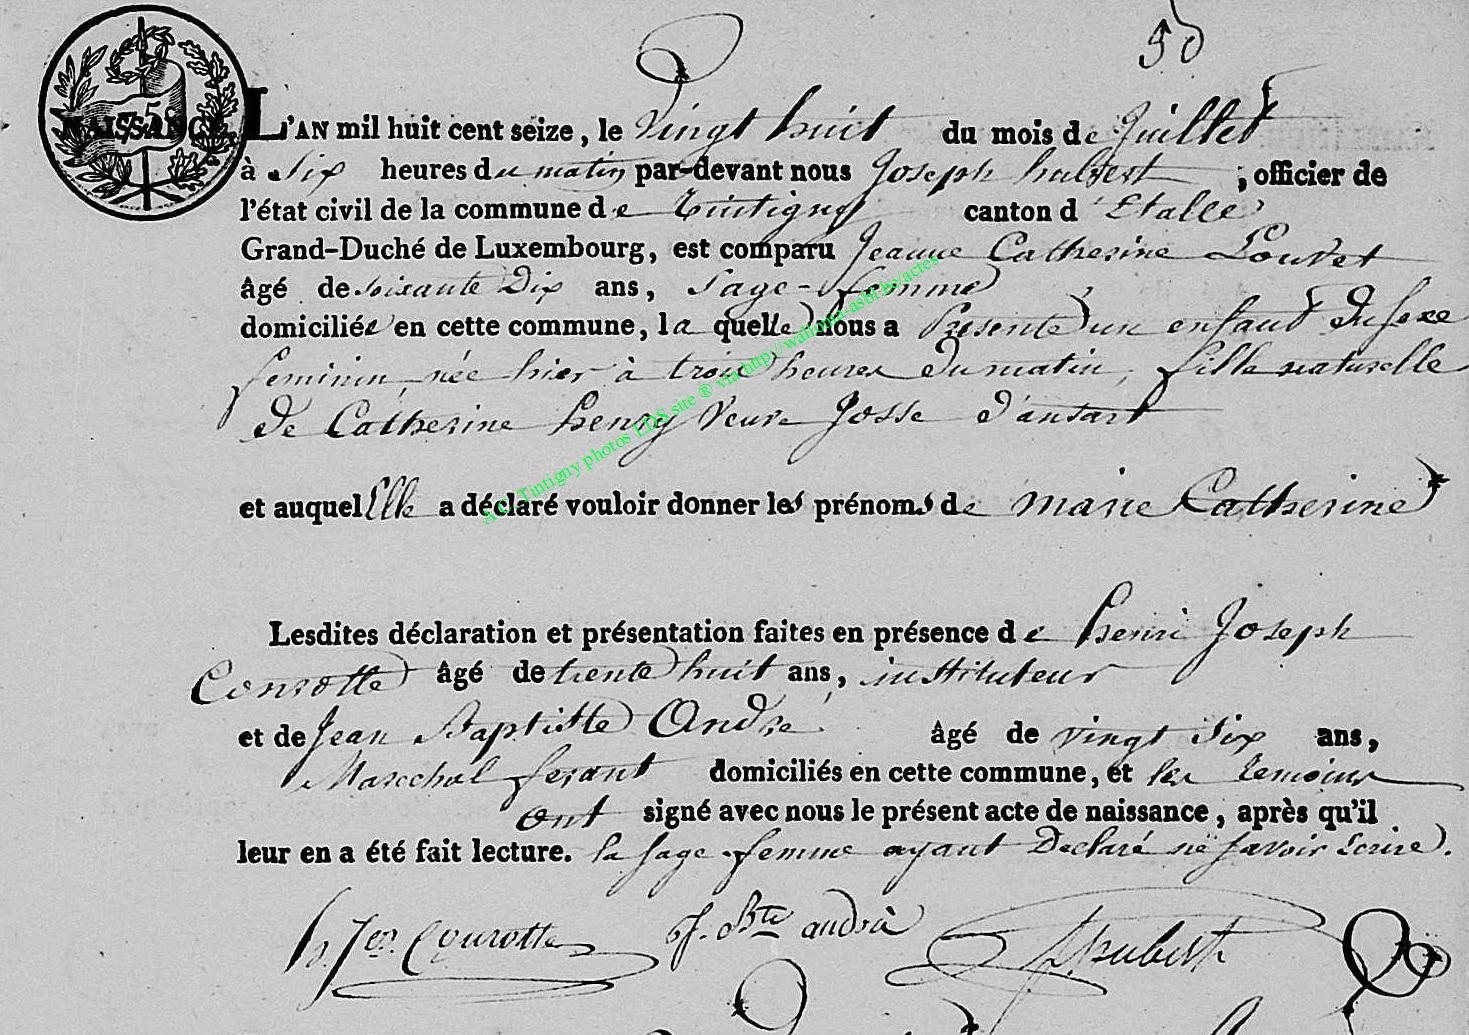 50
75
NAISSANCE.
L'AN mil huit cent seize, le vingt huit du mois de Juillet
à Six heures du matin par-devant nous Joseph hubert, officier de
l'état civil de la commune de Tintigny canton d'Etalle
Grand-Duché de Luxembourg, est comparu Jeanne Catherine Louvet
âgé de soixante Dix ans, Sage-femme
domiciliée en cette commune, la quelle nous a Presenté un enfant du sexe
feminin née hier à trois heures du matin, fille naturelle
de Catherine henry Veuve Josse d'ansart
et auquel Elle a déclaré vouloir donner les prénoms de marie Catherine
Lesdites déclaration et présentation faites en présence de henri Joseph
Conrotte âgé de trente huit ans, instituteur
et de Jean Baptiste André âgé de vingt Six ans,
Marechal ferant domiciliés en cette commune, et les temoins
ont signé avec nous le présent acte de naissance, après qu'il
leur en a été fait lecture. la sage femme ayant Declaré ne savoir Ecrire.
h. Jos. Conrotte J. Bte andré hubert
A.C. Tintigny photos LDS site ® via http://wallonia-asbl.be/actes